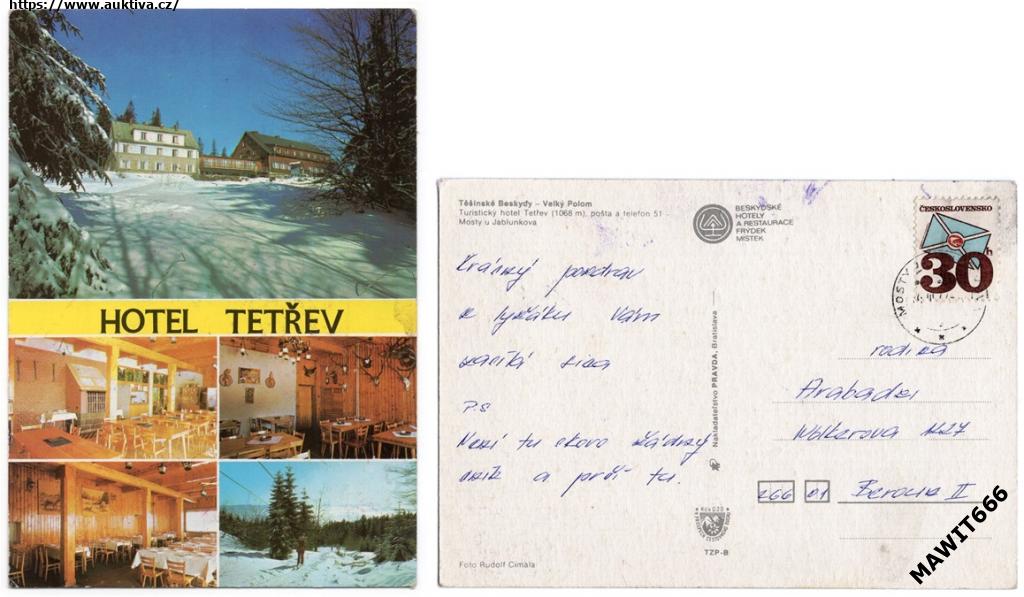 https://www.auktiva.cz/
HOTEL TETŘEV
Těšínské Beskydy – Velký Polom
Turistický hotel Tetřev (1068 m), pošta a telefon 51 -
Mosty u Jablunkova
BESKYDSKÉ
HOTELY
A RESTAURACE
FRÝDEK
MÍSTEK
ČESKOSLOVENSKO
30
h
MOSTY
Krásný pozdrav
z lyžáku Vám
zasílá
P.S
Není tu skoro žádný
sníh a prší tu.
Nakladatelství PRAVDA, Bratislava
rodina
Arabadzi
Wolkerova
266 01 Beroun II
TZP-B
Foto Rudolf Cimala
MAWIT666